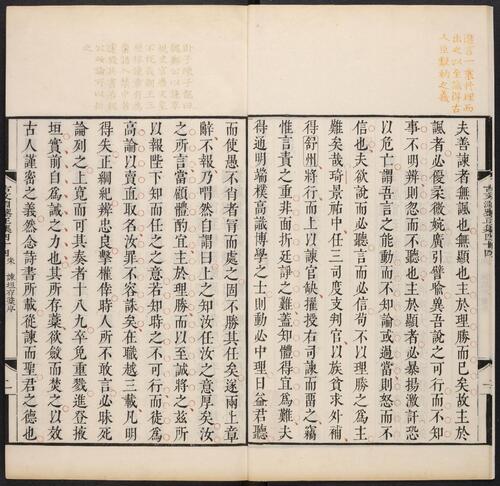 進言一衷於理而
出之以至誠得古
人臣獻納之義
夫善諫者無諷也無顯也主於理勝而已矣故主於
諷者必優柔微婉廣引譬喻異吾說之可行而不知
事不明辨則忽而不聽也主於顯者必暴揚激訐恐
以危亡謂吾言之能動而不知論或過當則怒而不
信也夫欲說而必聽言而必信苟不以理勝之為主
難矣哉琦景祐中任三司度支判官以族貧求外補
得舒州將行而上以諫官缺擢授右司諫而留之竊
惟言責之重非面折廷諍之難蓋知體得宜為難夫
得通明端樸高識博學之士則動必中理日益君聽
而使愚不肖者冒而處之固不勝其任矣遂兩上章
辭不報乃喟然自謂曰上之知汝任汝之意厚矣汝
之所言當顧體酌宜主於理勝而以至誠將之茲所
以報陛下知而任之之意若知時之不可行而徒為
高論以賣直取名汝罪不容誅矣在職越三載凡明
得失正綱紀辨忠良擊權倖時人所不敢言必昧死
論列之上寬而可其奏者十八九卒免重戮進登掖
垣實前自為誡之力也其所存藁欲斂而焚之以效
古人謹密之義然念詩書所載從諫而聖君之德也